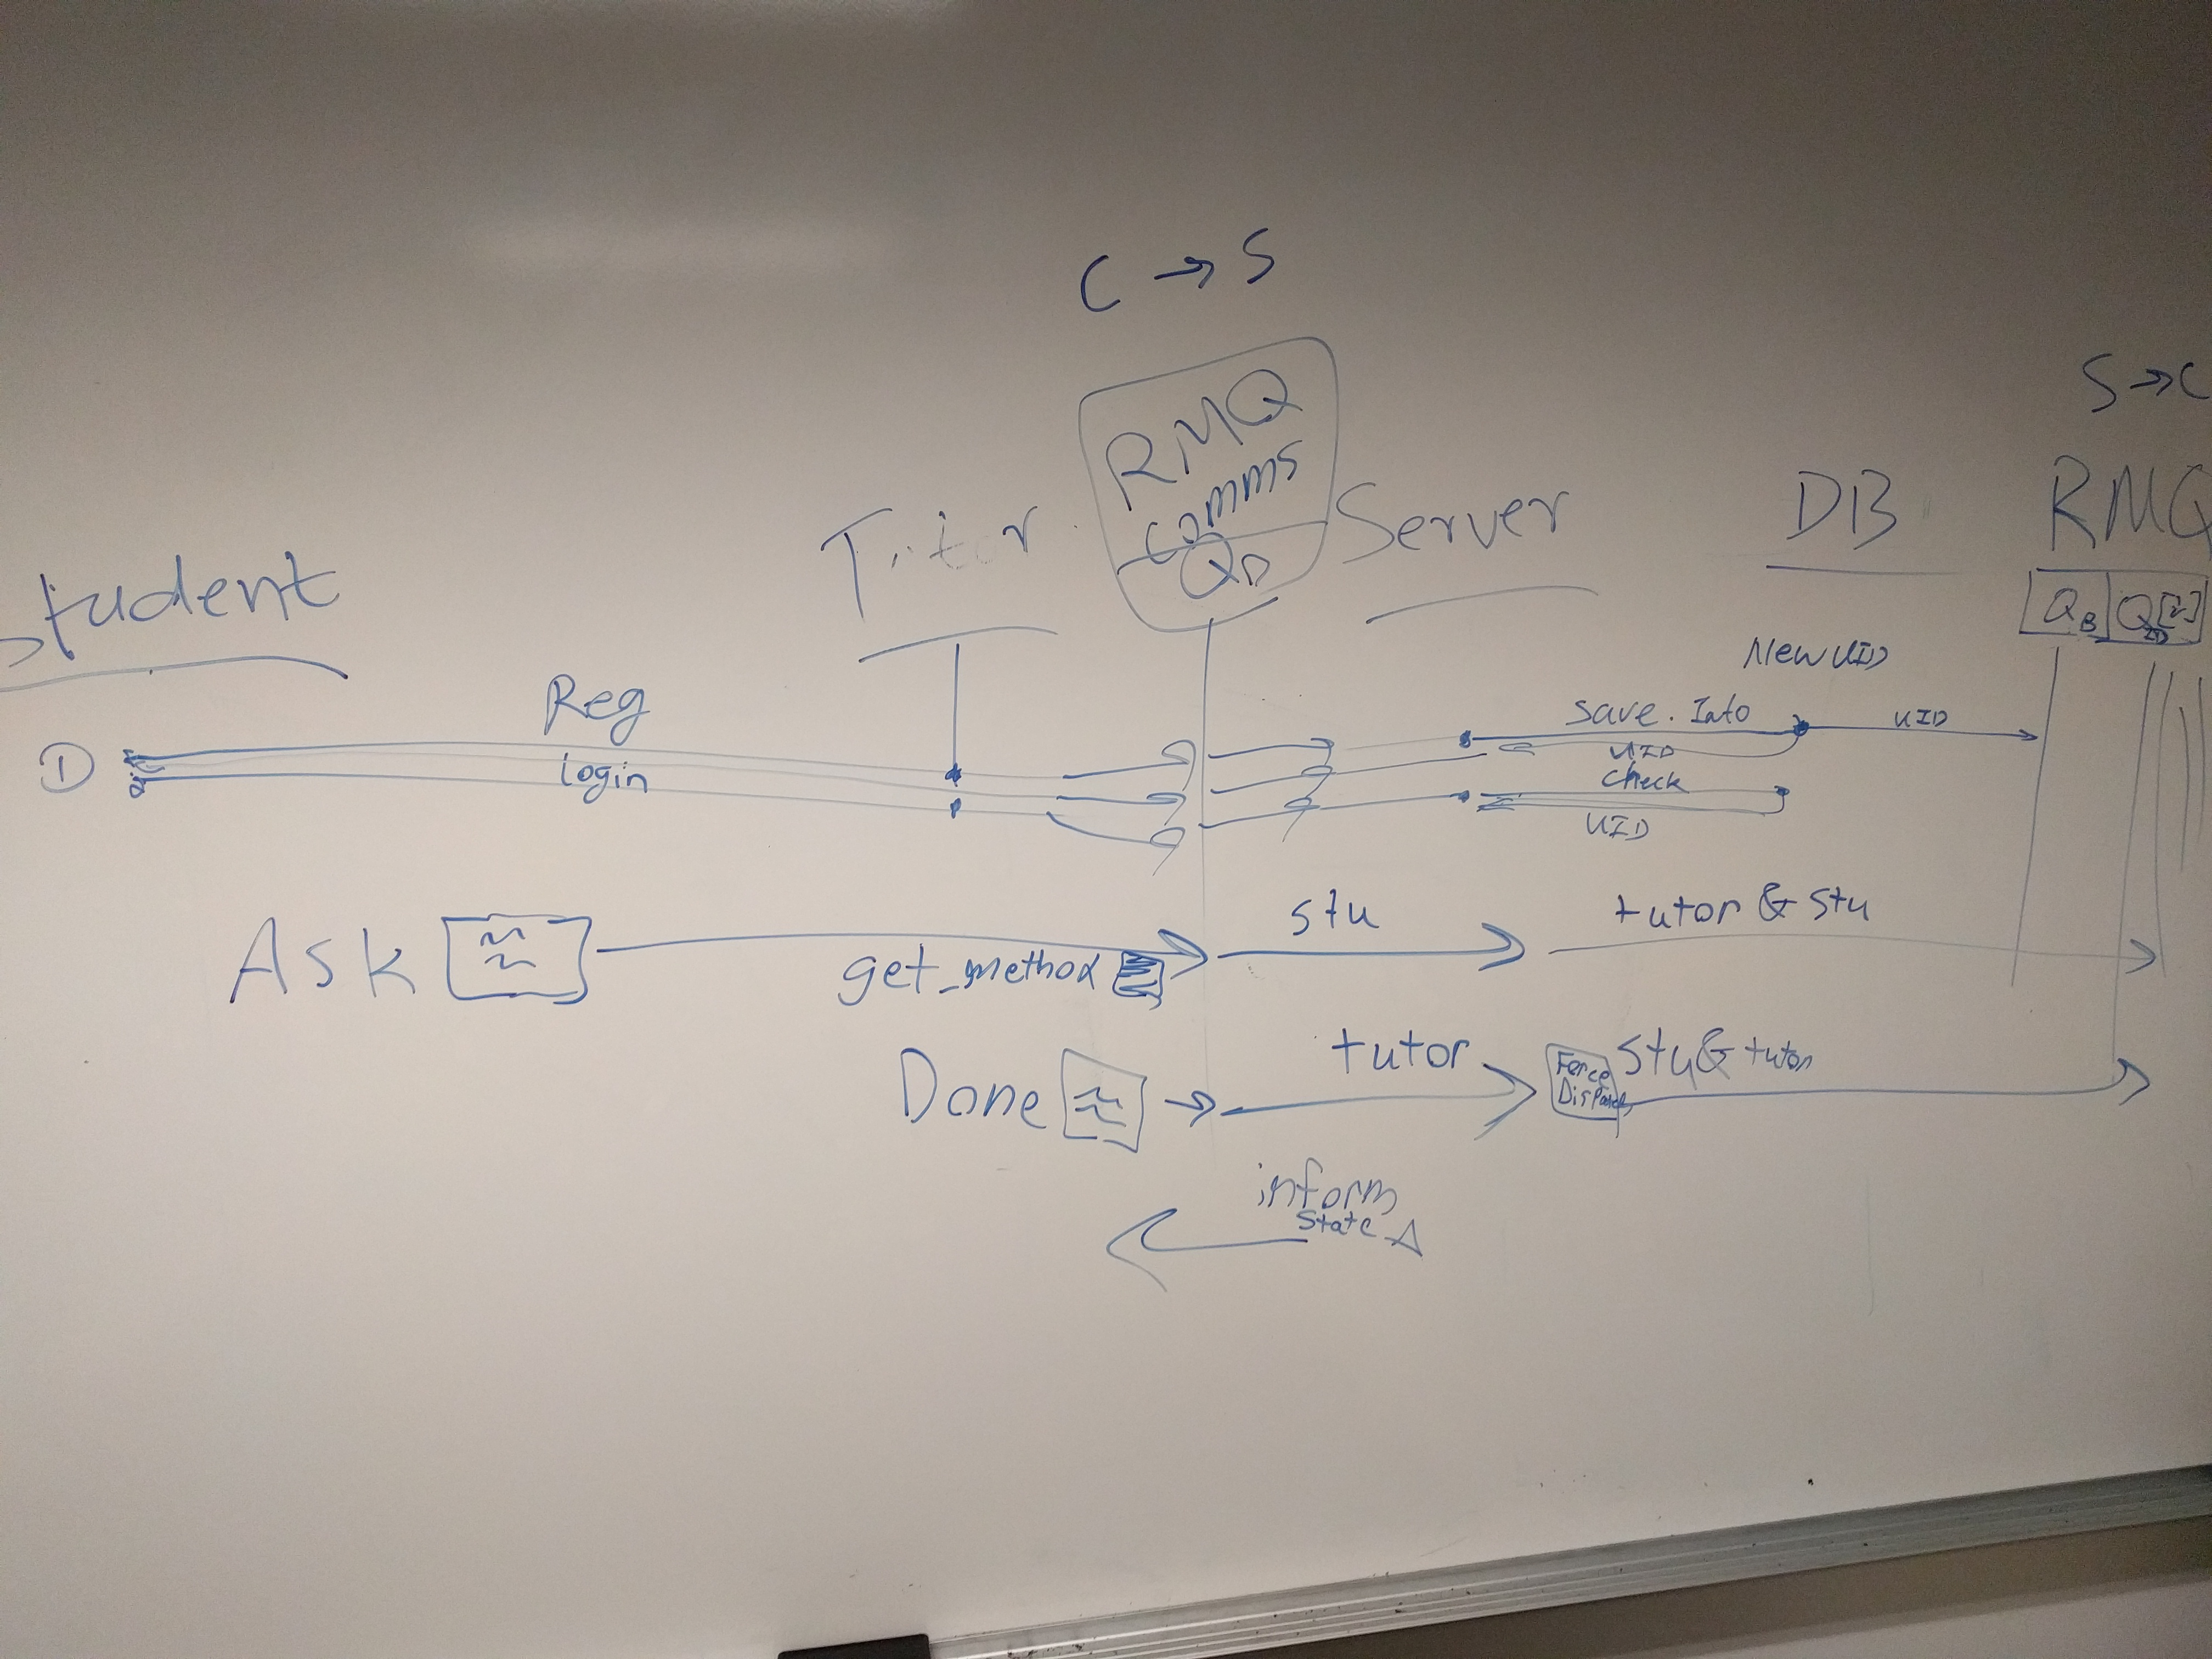 C → S
S → C
RMQ
comms
Student
Tutor
Server
DB
RMQ
QB
New UID
Reg
login
Save. Info
UID
UID
check
UID
Ask
get_method
stu
tutor & stu
Done
tutor
Force
Dispatch
stu & tutor
inform
state Δ